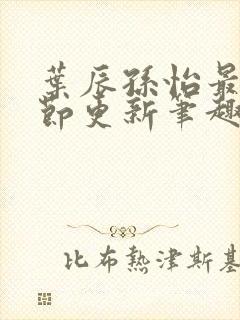 葉辰孫怡最
節更新筆趣
比布熱津斯基